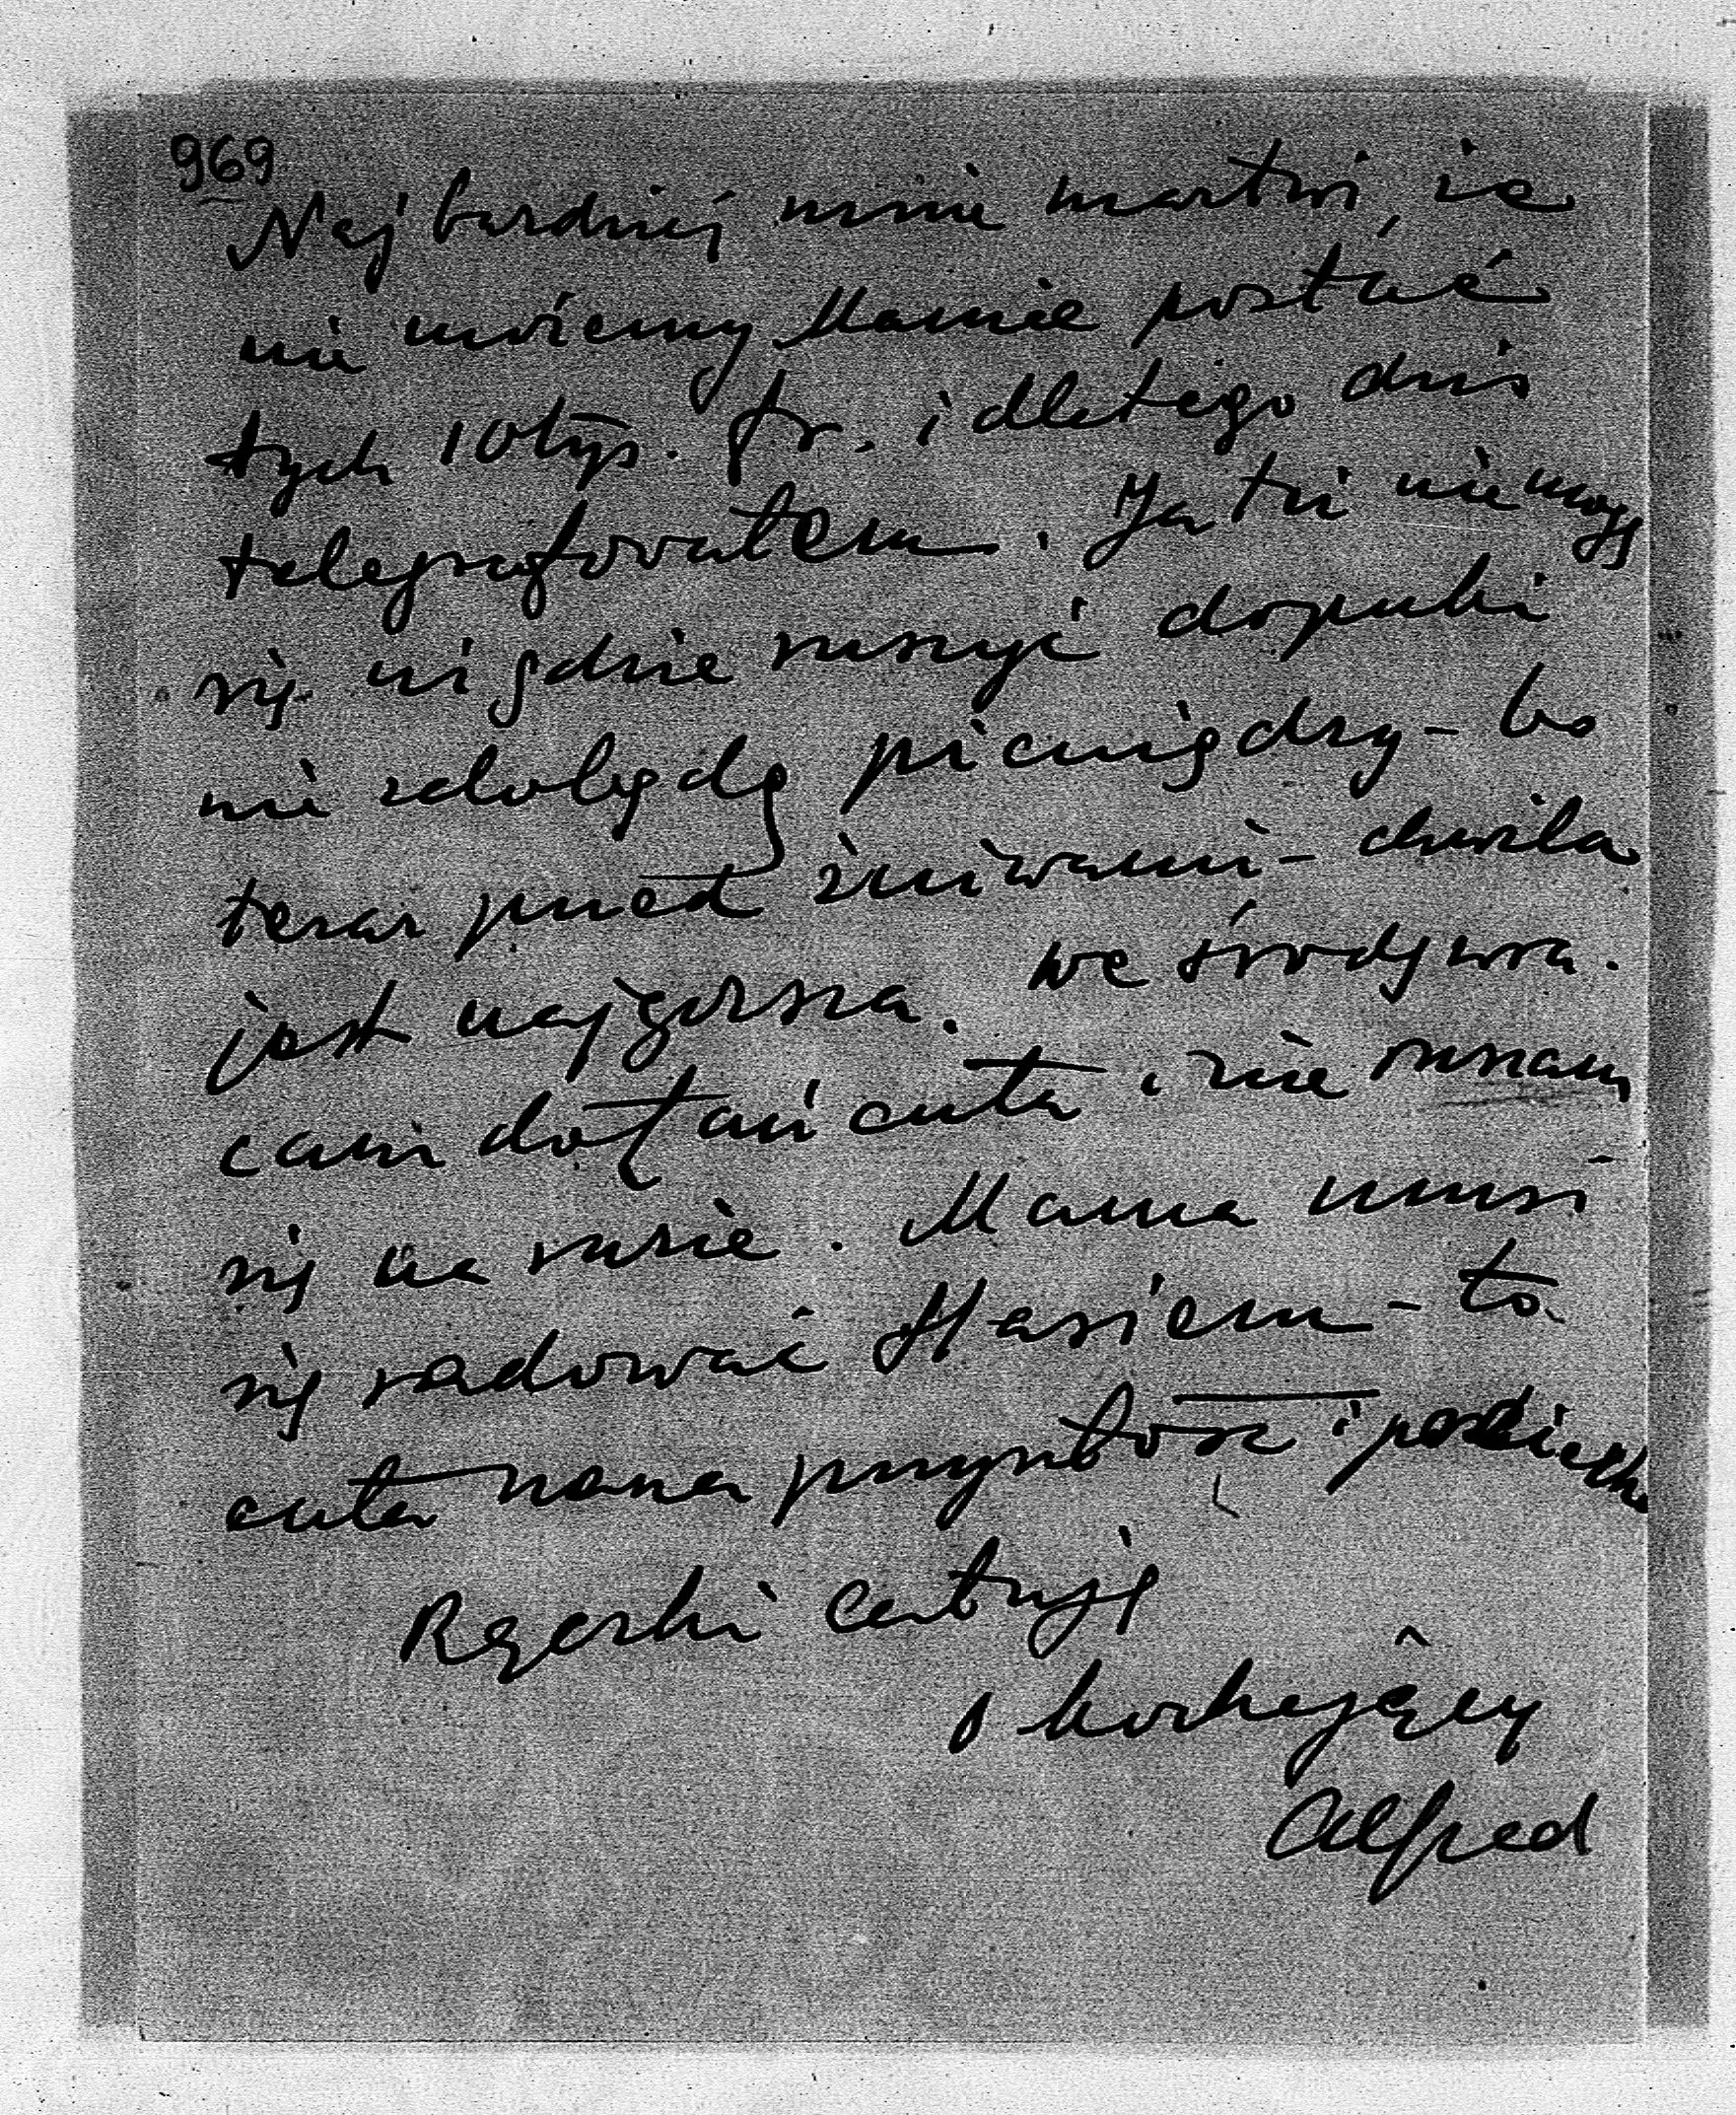 969
Najbardziej mnie martwi, że
nie możemy Mamie posłać
tych 10 tys. fr. i dlatego dziś
telegrafowałem. Ja tu nie mogę
się nigdzie ruszyć dopuki
nie zdobędę pieniędzy – bo
teraz przed żniwami – chwila
jest najgorsza. We środę wra-
cam do Łańcuta i nie ruszam
się na razie. Mama musi
się radować Stasiem – to
cała nasza przyszłość i pociecha
Rączki całuję
kochający
Alfred